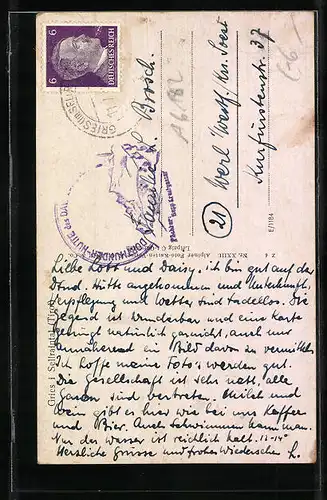 6
6
DEUTSCHES REICH
GRIES (im SELLRAIN)
DORTMUNDER-HÜTTE des DAV
A6/82
L. Brosch.
(21) Werl Westf. Krs. Soest
Kurfürstenstr. 37
E/1184
Nr. XXIII
Gries i Sellraintal
Liebe Lotte und Daisy, ich bin gut auf der
Dtmd. Hütte angekommen und Unterkunft,
Verpflegung und Wetter sind tadellos. Die
Gegend ist wunderbar und eine Karte
genügt natürlich garnicht, auch nur
annähernd ein Bild davon zu vermitteln
Ich hoffe meine Foto's werden gut.
Die Gesellschaft ist sehr nett, alle
sind vertreten. Milch und
Wein gibt es hier wie bei uns Kaffee
und Bier. Auch schwimmen kann man.
Nur das Wasser ist reichlich kalt. 12-14°
Herzliche Grüsse und frohes Wiedersehen L.